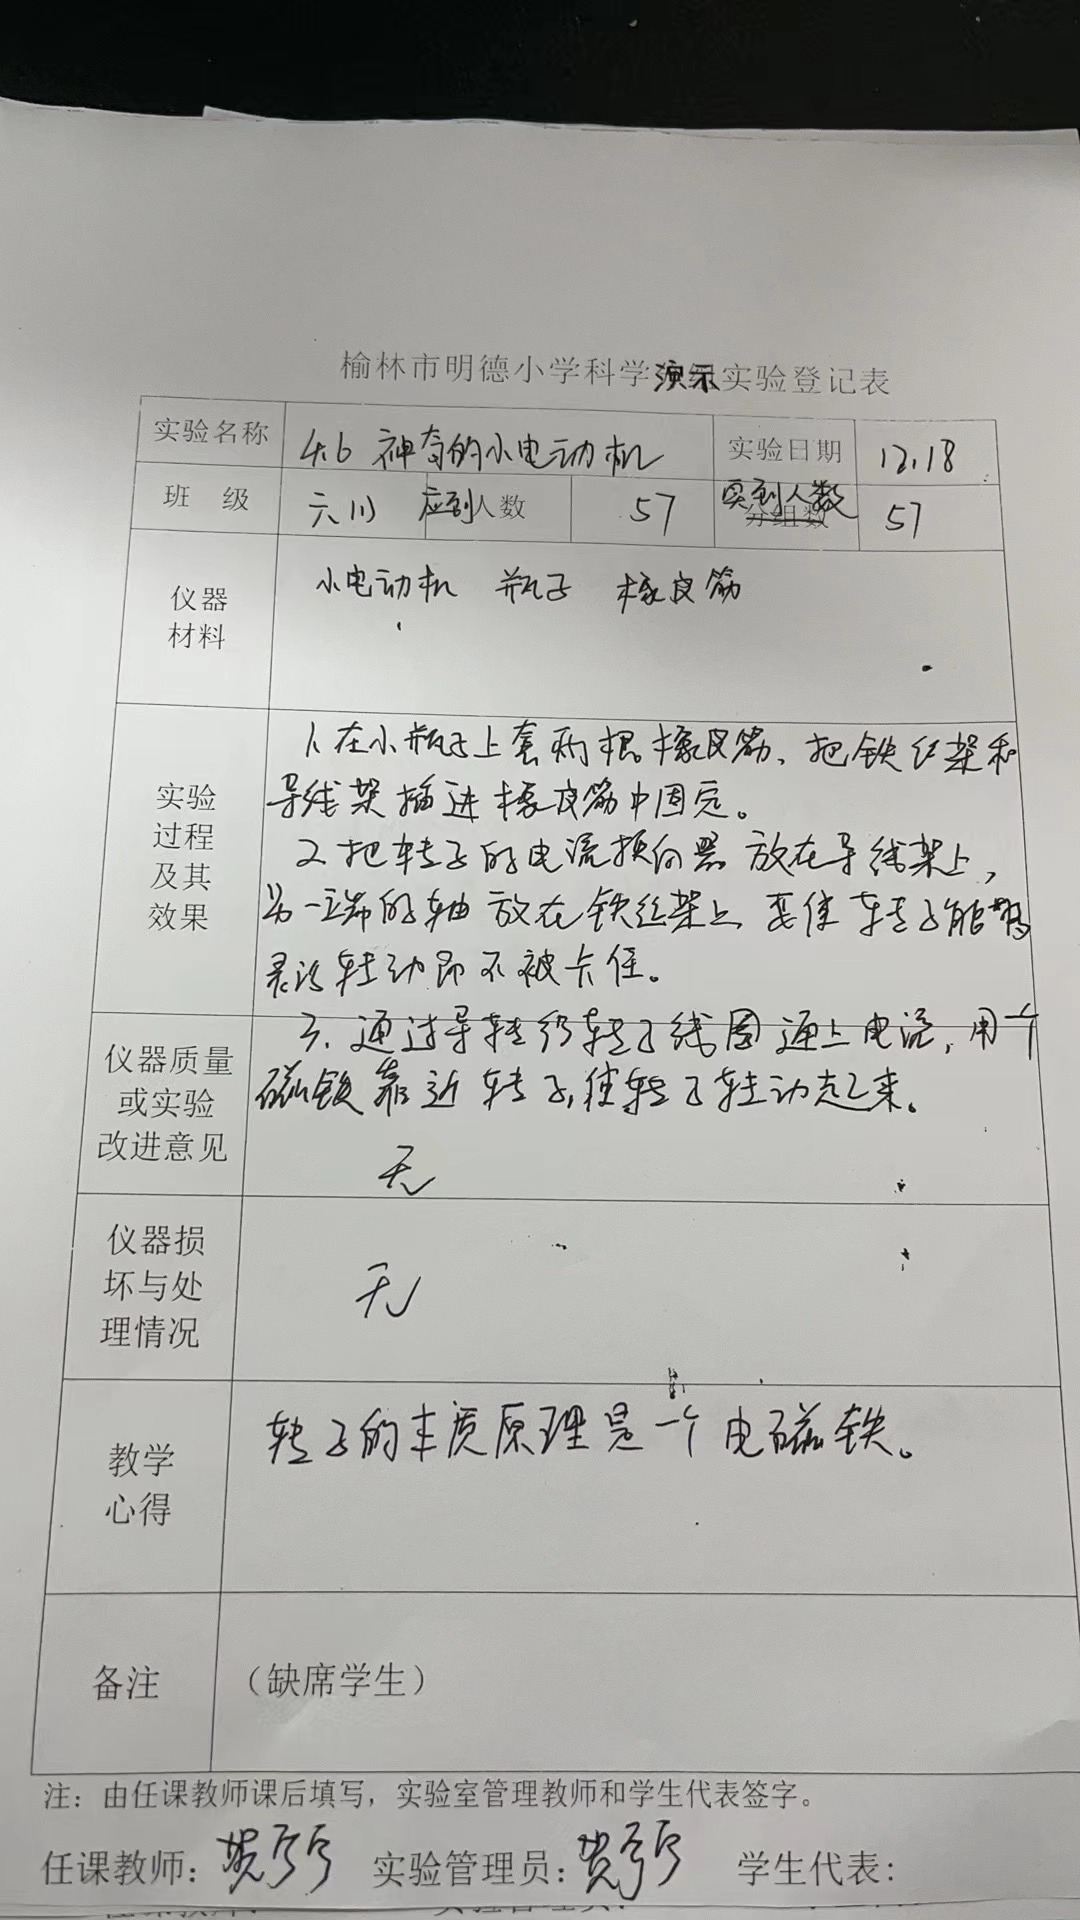 榆林市明德小学科学演示实验登记表
实验名称 4.6 神奇的小电动机 实验日期 12.18
班 级 六(1) 应到人数 57 实到人数 分组数 57
仪器材料 小电动机 瓶子 橡皮筋
实验过程及其效果
1、在小瓶子上套两根橡皮筋、把铁丝架和
导线架插进橡皮筋中固定。
2、把转子的电流换向器放在导线架上,
另一端的轴放在铁丝架上 要使转子能够
灵活转动即不被卡住。
3、通过导转给转子线圈通上电流,用一个
磁铁靠近转子,使转子转动起来。
仪器质量或实验改进意见 无
仪器损坏与处理情况 无
教学心得 转子的本质原理是一个电磁铁。
备注 (缺席学生)
注：由任课教师课后填写，实验室管理教师和学生代表签字。
任课教师： 实验管理员： 学生代表：